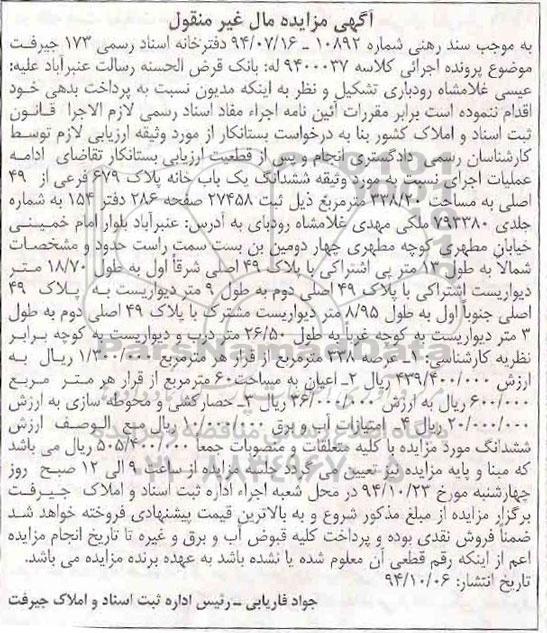 آگهی مزایده مال غیر منقول
به موجب سند رهنی شماره ۱۰۸۹۲ ـ ۹۴/۰۷/۱۶ دفترخانه اسناد رسمی ۱۷۳ جیرفت
موضوع پرونده اجرائی کلاسه ۹۴۰۰۰۳۷ له: بانک قرض الحسنه رسالت عنبرآباد علیه:
عیسی غلامشاه رودباری تشکیل و نظر به اینکه مدیون نسبت به پرداخت بدهی خود
اقدام ننموده است برابر مقررات آئین نامه اجراء مفاد اسناد رسمی لازم الاجرا قانون
ثبت اسناد و املاک کشور بنا به درخواست بستانکار از مورد وثیقه ارزیابی لازم توسط
کارشناسان رسمی دادگستری انجام و پس از قطعیت ارزیابی بستانکار تقاضای ادامه
عملیات اجرای نسبت به مورد وثیقه ششدانگ یک باب خانه پلاک ۶۷۹ فرعی از ۴۹
اصلی به مساحت ۳۳۸/۲۰ مترمربع ذیل ثبت ۲۷۴۵۸ صفحه ۲۸۶ دفتر ۱۵۴ به شماره
جلدی ۷۹۳۳۸۰ ملکی مهدی غلامشاه رودبای به آدرس: عنبرآباد بلوار امام خمینی
خیابان مطهری کوچه مطهری چهار دومین بن بست سمت راست حدود و مشخصات
شمالاً به طول ۱۳ متر پی اشتراکی با پلاک ۴۹ اصلی شرقاً اول به طول ۱۸/۷۰ متر
دیواریست اشتراکی با پلاک ۴۹ اصلی دوم به طول ۹ متر دیواریست به پلاک ۴۹
اصلی جنوباً اول به طول ۸/۹۵ متر دیواریست مشترک با پلاک ۴۹ اصلی دوم به طول
۳ متر دیواریست به کوچه غرباً به طول ۲۶/۵۰ متر درب و دیواریست به کوچه برابر
نظریه کارشناسی: ۱ـ عرصه ۳۳۸ مترمربع از قرار هر مترمربع ۱/۳۰۰/۰۰۰ ریال به
ارزش ۴۳۹/۴۰۰/۰۰۰ ریال ۲ـ اعیان به مساحت ۶۰ مترمربع از قرار هر متر مربع
۶۰۰/۰۰۰ ریال به ارزش ۳۶/۰۰۰/۰۰۰ ریال ۳ـ حصارکشی و محوطه سازی به ارزش
۲۰/۰۰۰/۰۰۰ ریال ۴ـ امتیازات آب و برق ۱۰/۰۰۰/۰۰۰ ریال مع الوصف ارزش
ششدانگ مورد مزایده با کلیه متعلقات و منصوبات جمعاً ۵۰۵/۴۰۰/۰۰۰ ریال می باشد
که مبنا و پایه مزایده نیز تعیین می گردد جلسه مزایده از ساعت ۹ الی ۱۲ صبح روز
چهارشنبه مورخ ۹۴/۱۰/۲۳ در محل شعبه اجراء اداره ثبت اسناد و املاک جیرفت
برگزار مزایده از مبلغ مذکور شروع و به بالاترین قیمت پیشنهادی فروخته خواهد شد
ضمناً فروش نقدی بوده و پرداخت کلیه قبوض آب و برق و غیره تا تاریخ انجام مزایده
اعم از اینکه رقم قطعی آن معلوم شده یا نشده باشد به عهده برنده مزایده می باشد.
تاریخ انتشار: ۹۴/۱۰/۰۶
جواد فاریابی ـ رئیس اداره ثبت اسناد و املاک جیرفت